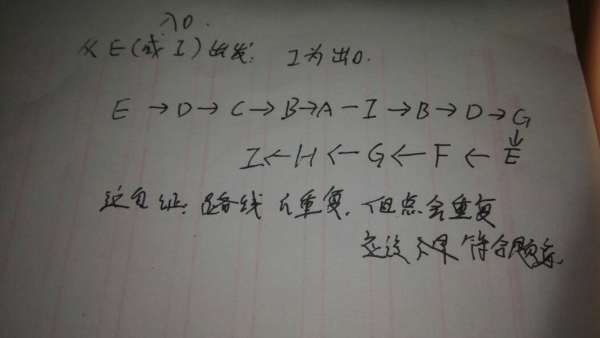 入口.
从E(或I)出发: I为出口.
E→D→C→B→A-I→B→D→G
↓
I←H←G←F←E
这包证: 路线不重复. 但点会重复
应该是符合题意.